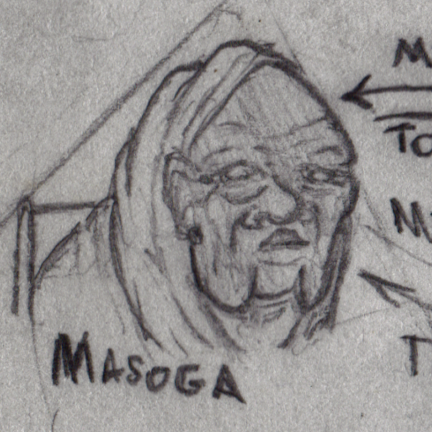 M
TO
M
T
MASOGA